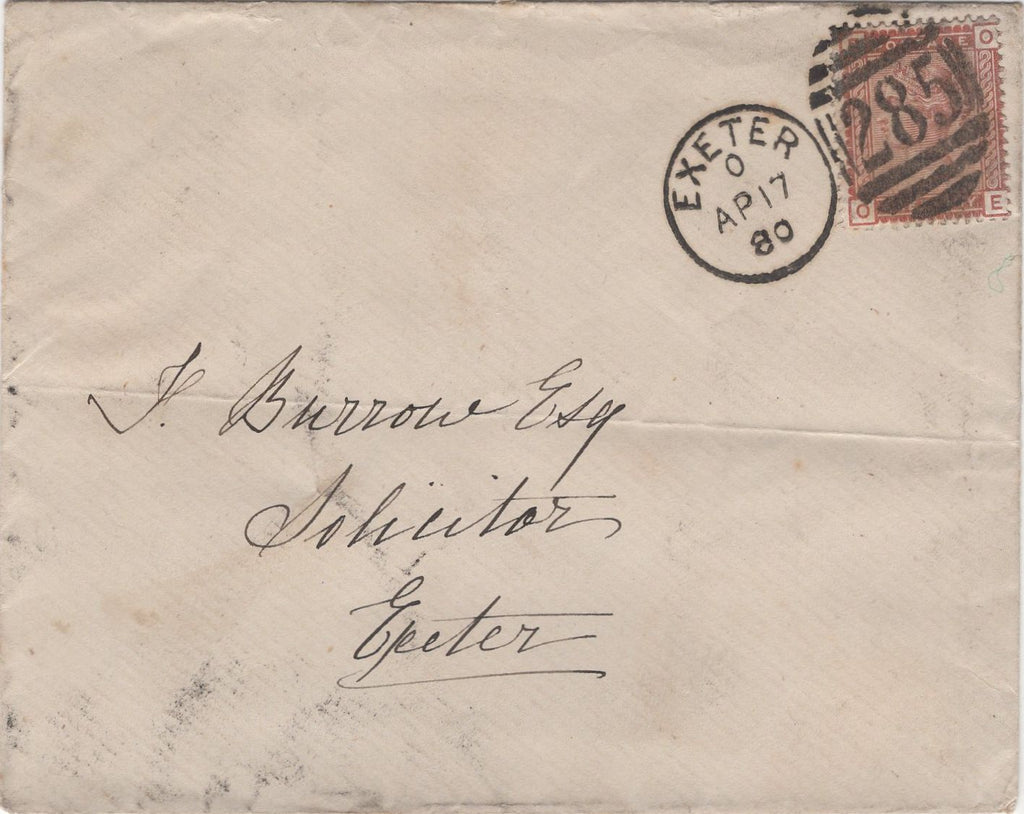 O
285
O E
EXETER
O
AP 17
80
J. Burrow Esq
Solicitor
Exeter